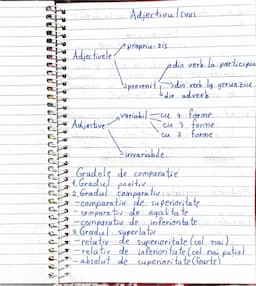 Adjectivul (var)
propriu-zis
Adjectivele
din verb la participiu
provenit din verb la gerunziu
din adverb
variabil cu 4 forme
Adjective cu 3 forme
cu 2 forme
invariabile
Gradele de comparație
1. Gradul pozitiv
2. Gradul comparativ:
- comparativ de superioritate
- comparativ de egalitate
- comparativ de inferioritate
3. Gradul superlativ
- relativ de superioritate (cel mai)
- relativ de inferioritate (cel mai puțin)
- absolut de superioritate (foarte)